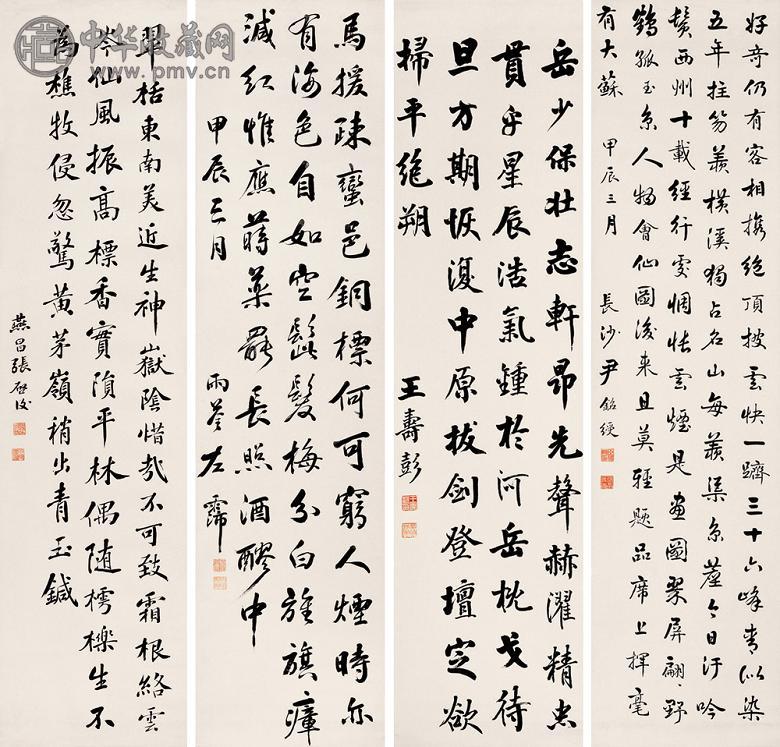 中华收藏网
www.pmv.cn
好奇仍有客相携绝頂披雲快一躋三十六峰青似染
五年拄笏羨橫溪獨占名山每羨渠京塵今日汙吟
鬚西州十載經行處惆悵雲煙是畫圖翠屏翩翩野
鶴孤玉京人物會仙圖後来且莫輕題品席上揮毫
有大蘇 甲辰三月 長沙尹銘綬
岳少保壯志軒昂先聲赫濯精忠
貫乎星辰浩氣鍾於河岳枕戈待
旦方期恢復中原拔劍登壇定欲
掃平絶朔 王壽彭
馬援疎蠻邑銅標何可窮人煙時亦
有海色自如空髭髮梅分白旌旗瘴
減紅惟應蒔藥罷長照酒醪中
甲辰三月 雨荃左霈
翠栝東南美近生神嶽陰惜哉不可致霜根絡雲
岑仙風振高標香實隕平林偶随樗櫟生不
為樵牧侵忽驚黃茅嶺稍出青玉鍼
燕昌張啟後